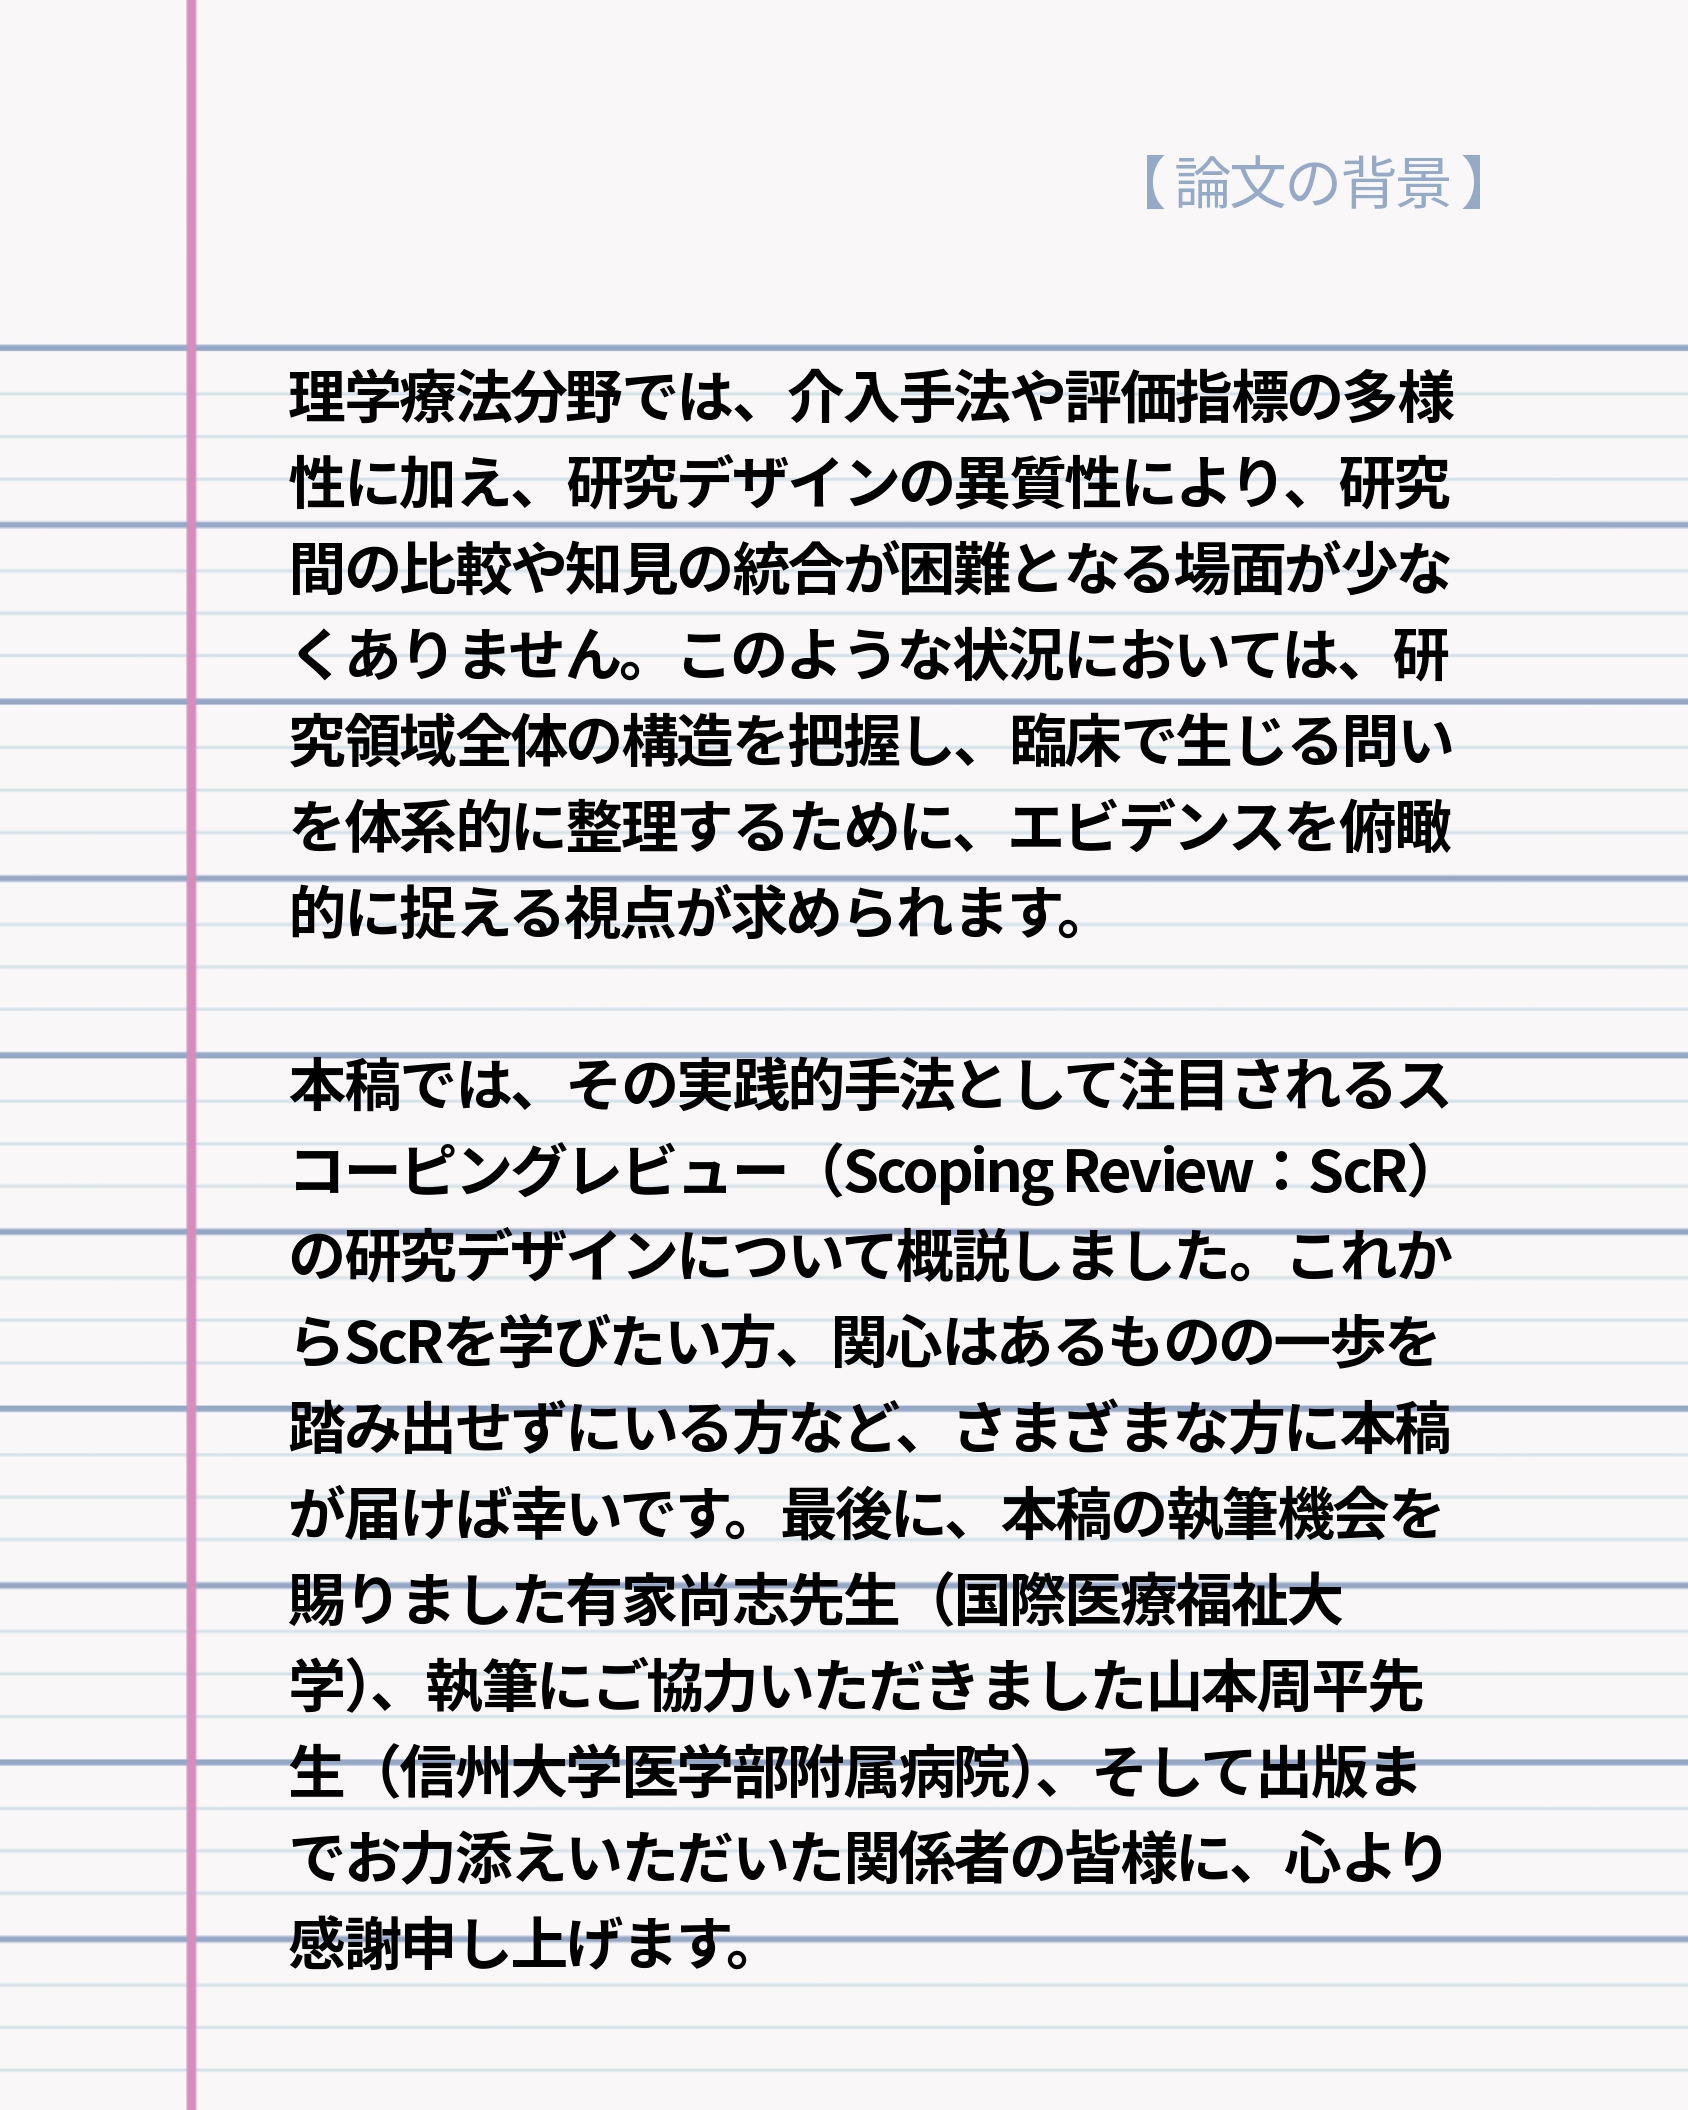 【論文の背景】
理学療法分野では、介入手法や評価指標の多様
性に加え、研究デザインの異質性により、研究
間の比較や知見の統合が困難となる場面が少な
くありません。このような状況においては、研
究領域全体の構造を把握し、臨床で生じる問い
を体系的に整理するために、エビデンスを俯瞰
的に捉える視点が求められます。
本稿では、その実践的手法として注目されるス
コーピングレビュー（Scoping Review：ScR）
の研究デザインについて概説しました。これか
らScRを学びたい方、関心はあるものの一歩を
踏み出せずにいる方など、さまざまな方に本稿
が届けば幸いです。最後に、本稿の執筆機会を
賜りました有家尚志先生（国際医療福祉大
学）、執筆にご協力いただきました山本周平先
生（信州大学医学部附属病院）、そして出版ま
でお力添えいただいた関係者の皆様に、心より
感謝申し上げます。